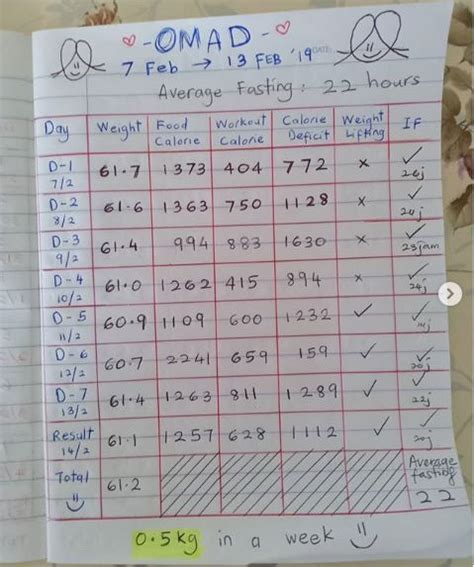 - OMAD -
7 Feb → 13 FEB '19 DATE:
Average Fasting : 22 hours
Day Weight Food Calorie Workout Calorie Calorie Deficit Weight Lifting IF
D-1 7/2 61.7 1373 404 772 x ✓ 24j
D-2 8/2 61.6 1363 750 1128 x ✓ 24j
D-3 9/2 61.4 994 883 1630 x ✓ 23jam
D-4 10/2 61.0 1262 415 894 x ✓ 24j
D-5 11/2 60.9 1109 600 1232 ✓ ✓
D-6 12/2 60.7 2241 659 159 ✓ ✓ 20j
D-7 13/2 61.4 1263 811 1289 ✓ ✓ 22j
Result 14/2 61.1 1257 628 1112 ✓ ✓
Total 61.2 Average fasting 22
0.5kg in a week